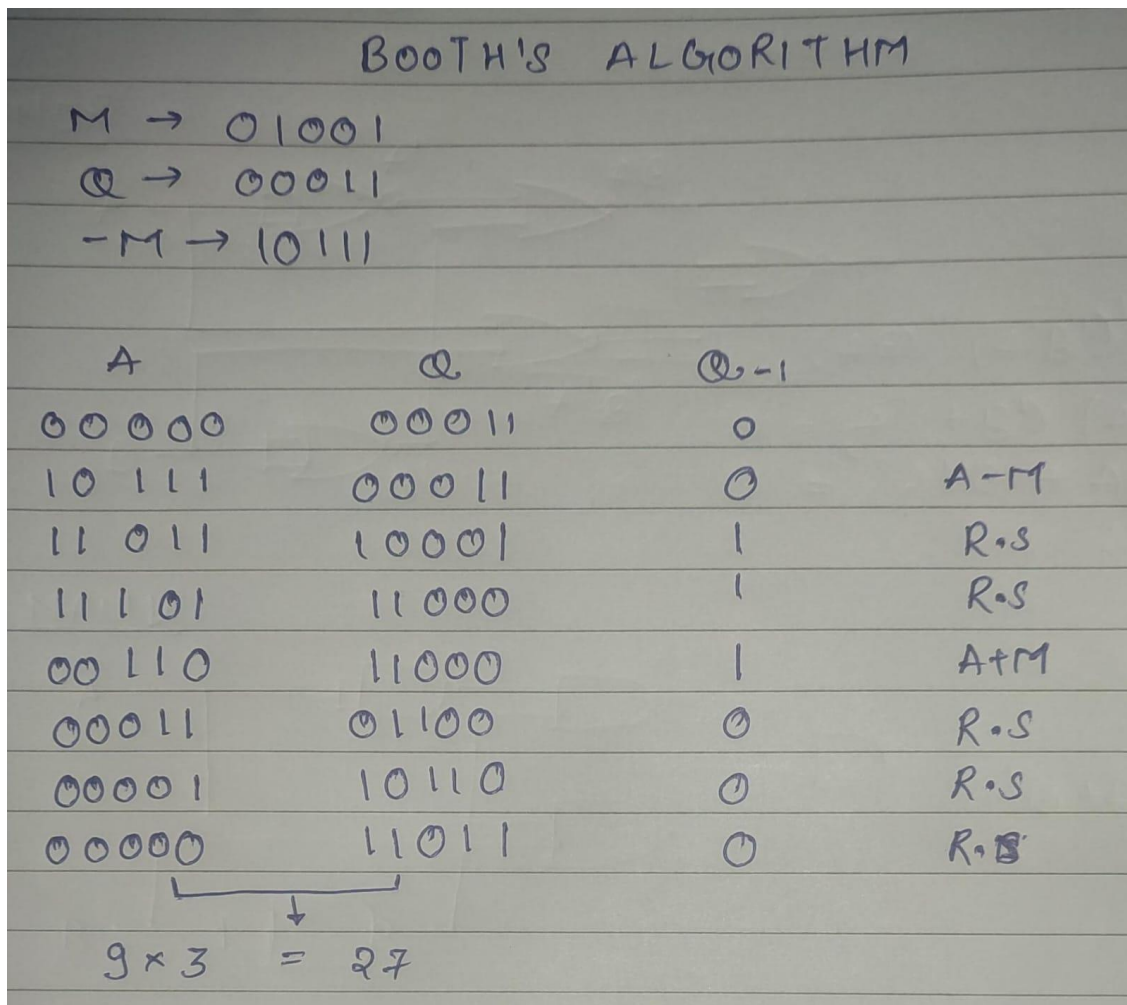 BOOTH'S ALGORITHM
M → 01001
Q → 00011
-M → 10111
A Q Q-1
00000 00011 0
10111 00011 0 A-M
11011 10001 1 R.S
11101 11000 1 R.S
00110 11000 1 A+M
00011 01100 0 R.S
00001 10110 0 R.S
00000 11011 0 R.S
9 × 3 = 27